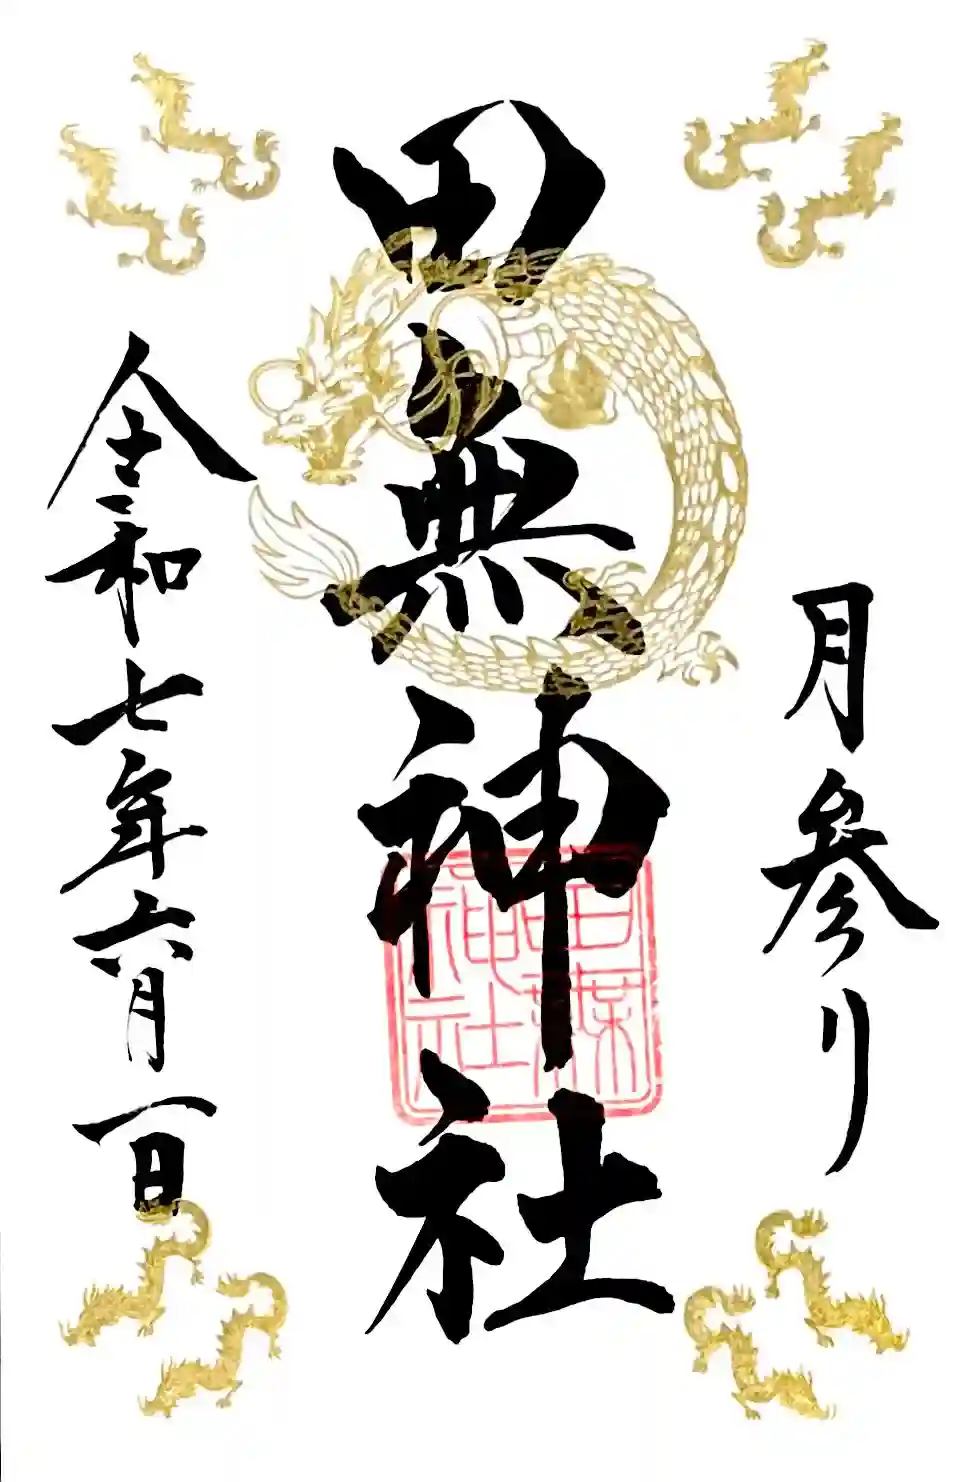 月参り
田無神社
田無神社
令和七年六月一日